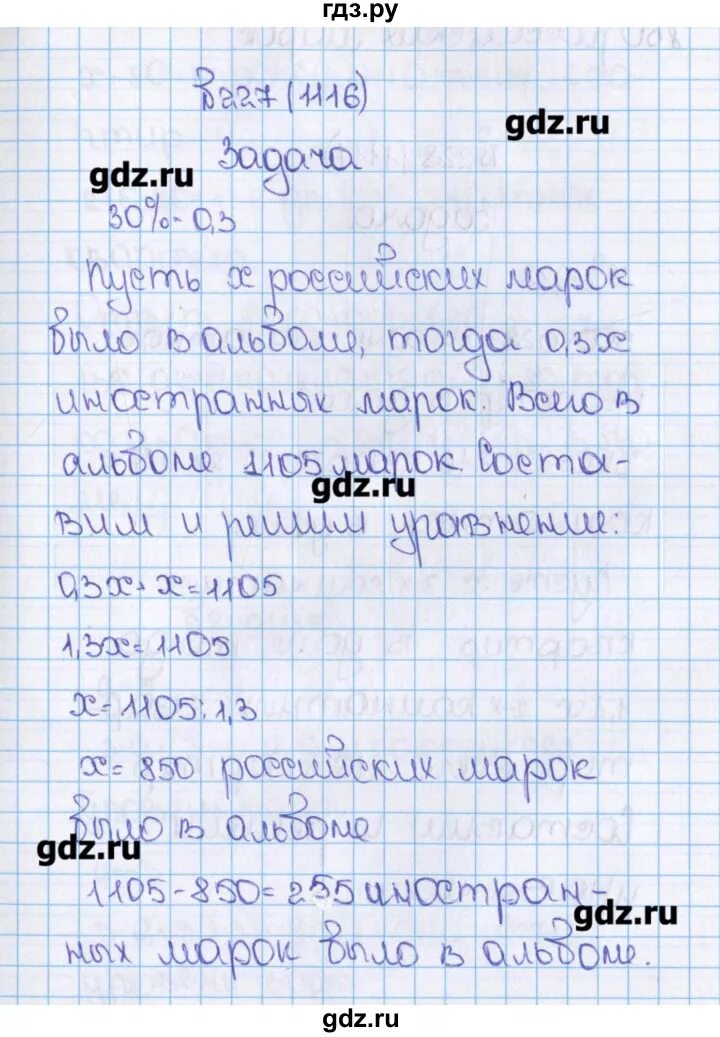 гдз.ру
В227 (1116)
gdz.ru
Задача
gdz.ru
30% - 0,3
Пусть x российских марок
было в альбоме, тогда 0,3x
иностранных марок. Всего в
альбоме 1105 марок. Соста-
gdz.ru
вим и решим уравнение:
0,3x + x = 1105
1,3x = 1105
x = 1105 : 1,3
x = 850 российских марок
было в альбоме
gdz.ru
1105 - 850 = 255 иностран-
gdz.ru
ных марок было в альбоме.
gdz.ru